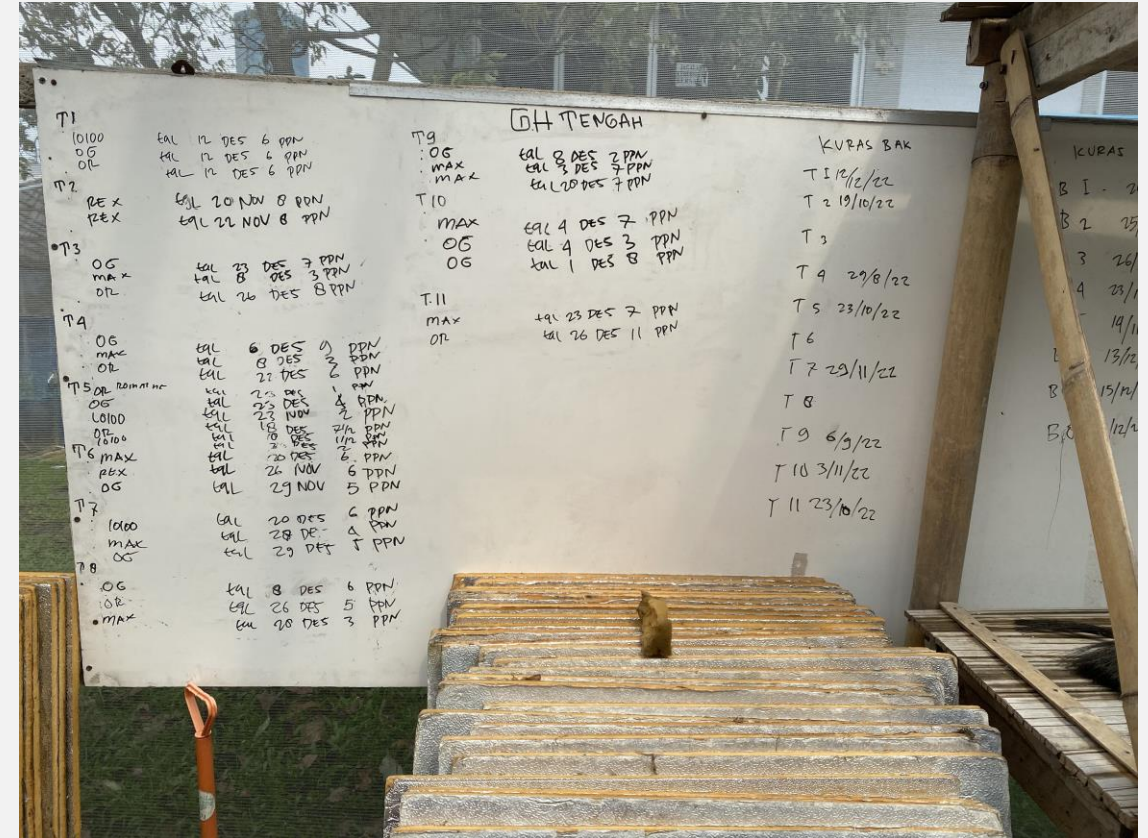 GH TENGAH
T1
10100 tgl 12 DES 6 PPN
OG tgl 12 DES 6 PPN
OR tgl 12 DES 6 PPN
T2
REX tgl 20 NOV 8 PPN
REX tgl 22 NOV 8 PPN
T3
OG tgl 23 DES 7 PPN
MAX tgl 8 DES 3 PPN
OR tgl 26 DES 8 PPN
T4
OG tgl 6 DES 9 PPN
MAX tgl 8 DES 3 PPN
OR tgl 22 DES 6 PPN
T5 OR
OG tgl DES PPN
10100 tgl 23 NOV 2 PPN
OR tgl 18 DES PPN
10100 tgl 10 DES PPN
T6
MAX tgl 20 DES 6 PPN
REX tgl 26 NOV 6 PPN
OG tgl 29 NOV 5 PPN
T7
10100 tgl 20 DES 6 PPN
MAX tgl 28 DE 4 PPN
OG tgl 29 DES 5 PPN
T8
OG tgl 8 DES 6 PPN
OR tgl 26 DES 5 PPN
MAX tgl 28 DES 3 PPN
T9
OG tgl 8 DES 2 PPN
MAX tgl 3 DES 7 PPN
MAX tgl 20 DES 7 PPN
T10
MAX tgl 4 DES 7 PPN
OG tgl 4 DES 3 PPN
OG tgl 1 DES 8 PPN
T.11
MAX tgl 23 DES 7 PPN
OR tgl 26 DES 11 PPN
KURAS BAK
T1 12/12/22
T2 19/10/22
T3
T4 29/8/22
T5 23/10/22
T6
T7 29/11/22
T8
T9 6/9/22
T10 3/11/22
T11 23/10/22
KURAS
B I - 2
B 2 25
3 26/
4 23/1
19/11
13/12
B 15/12/
B /12/2